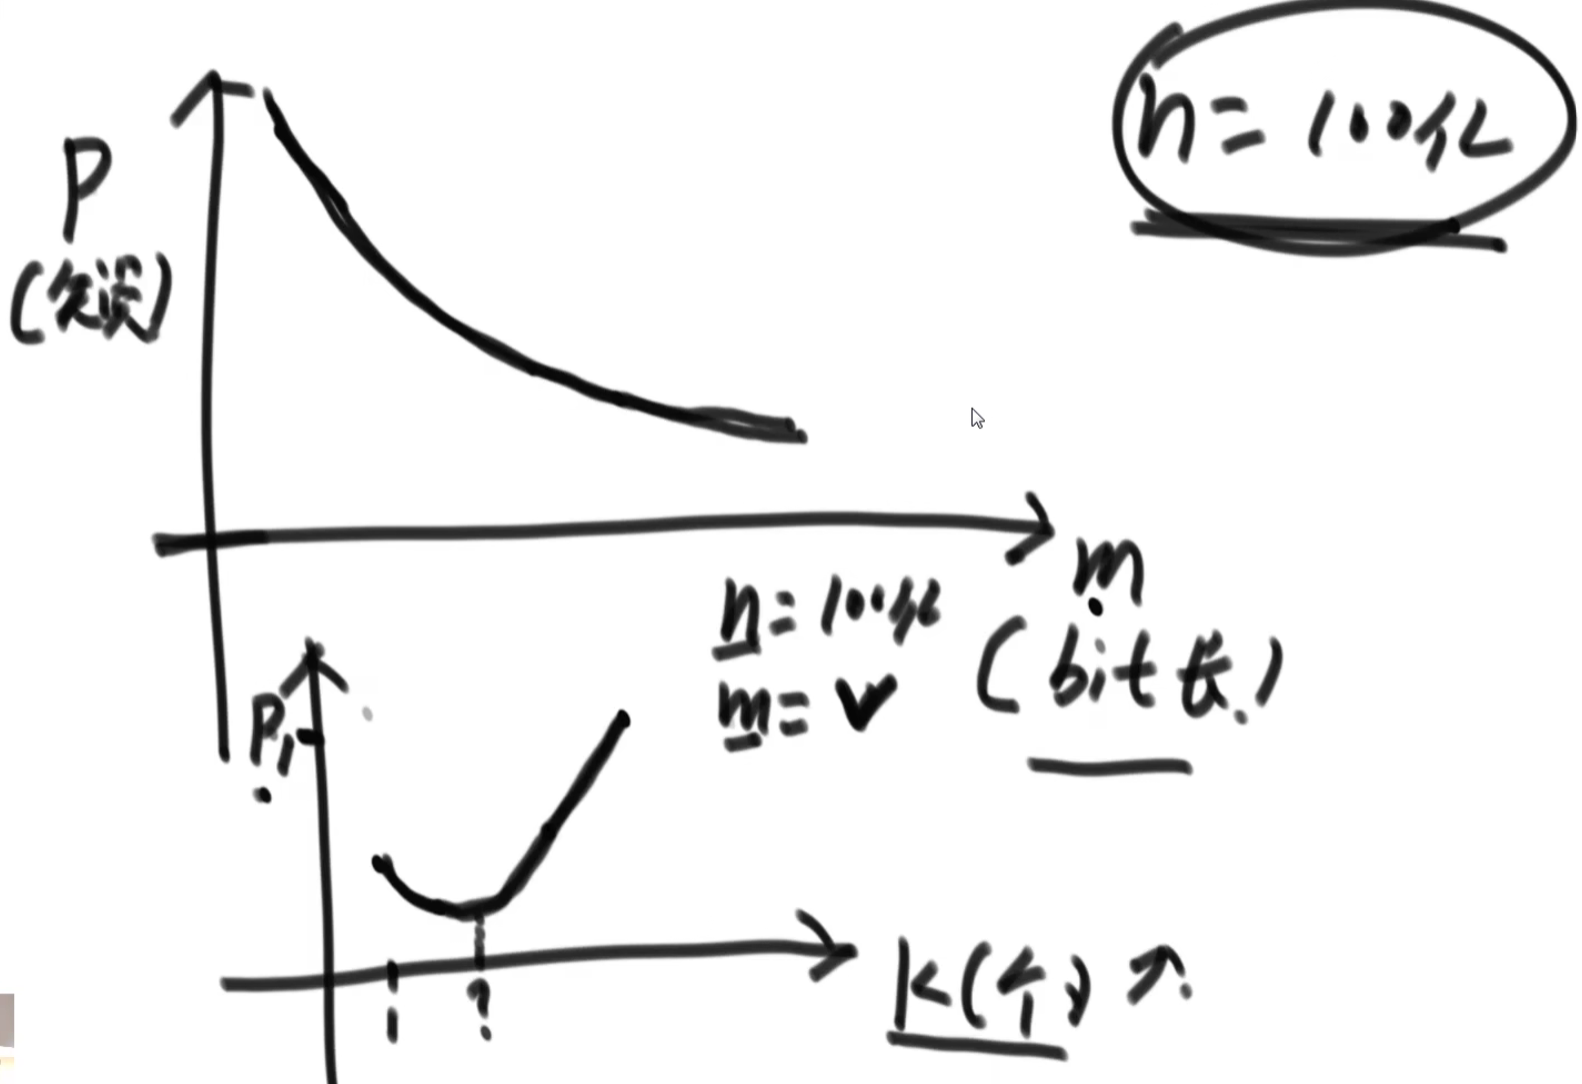 n = 100亿
P
(失误)
m
(bit长)
n = 100亿
m = ✓
P1
1
?
k(个)↑